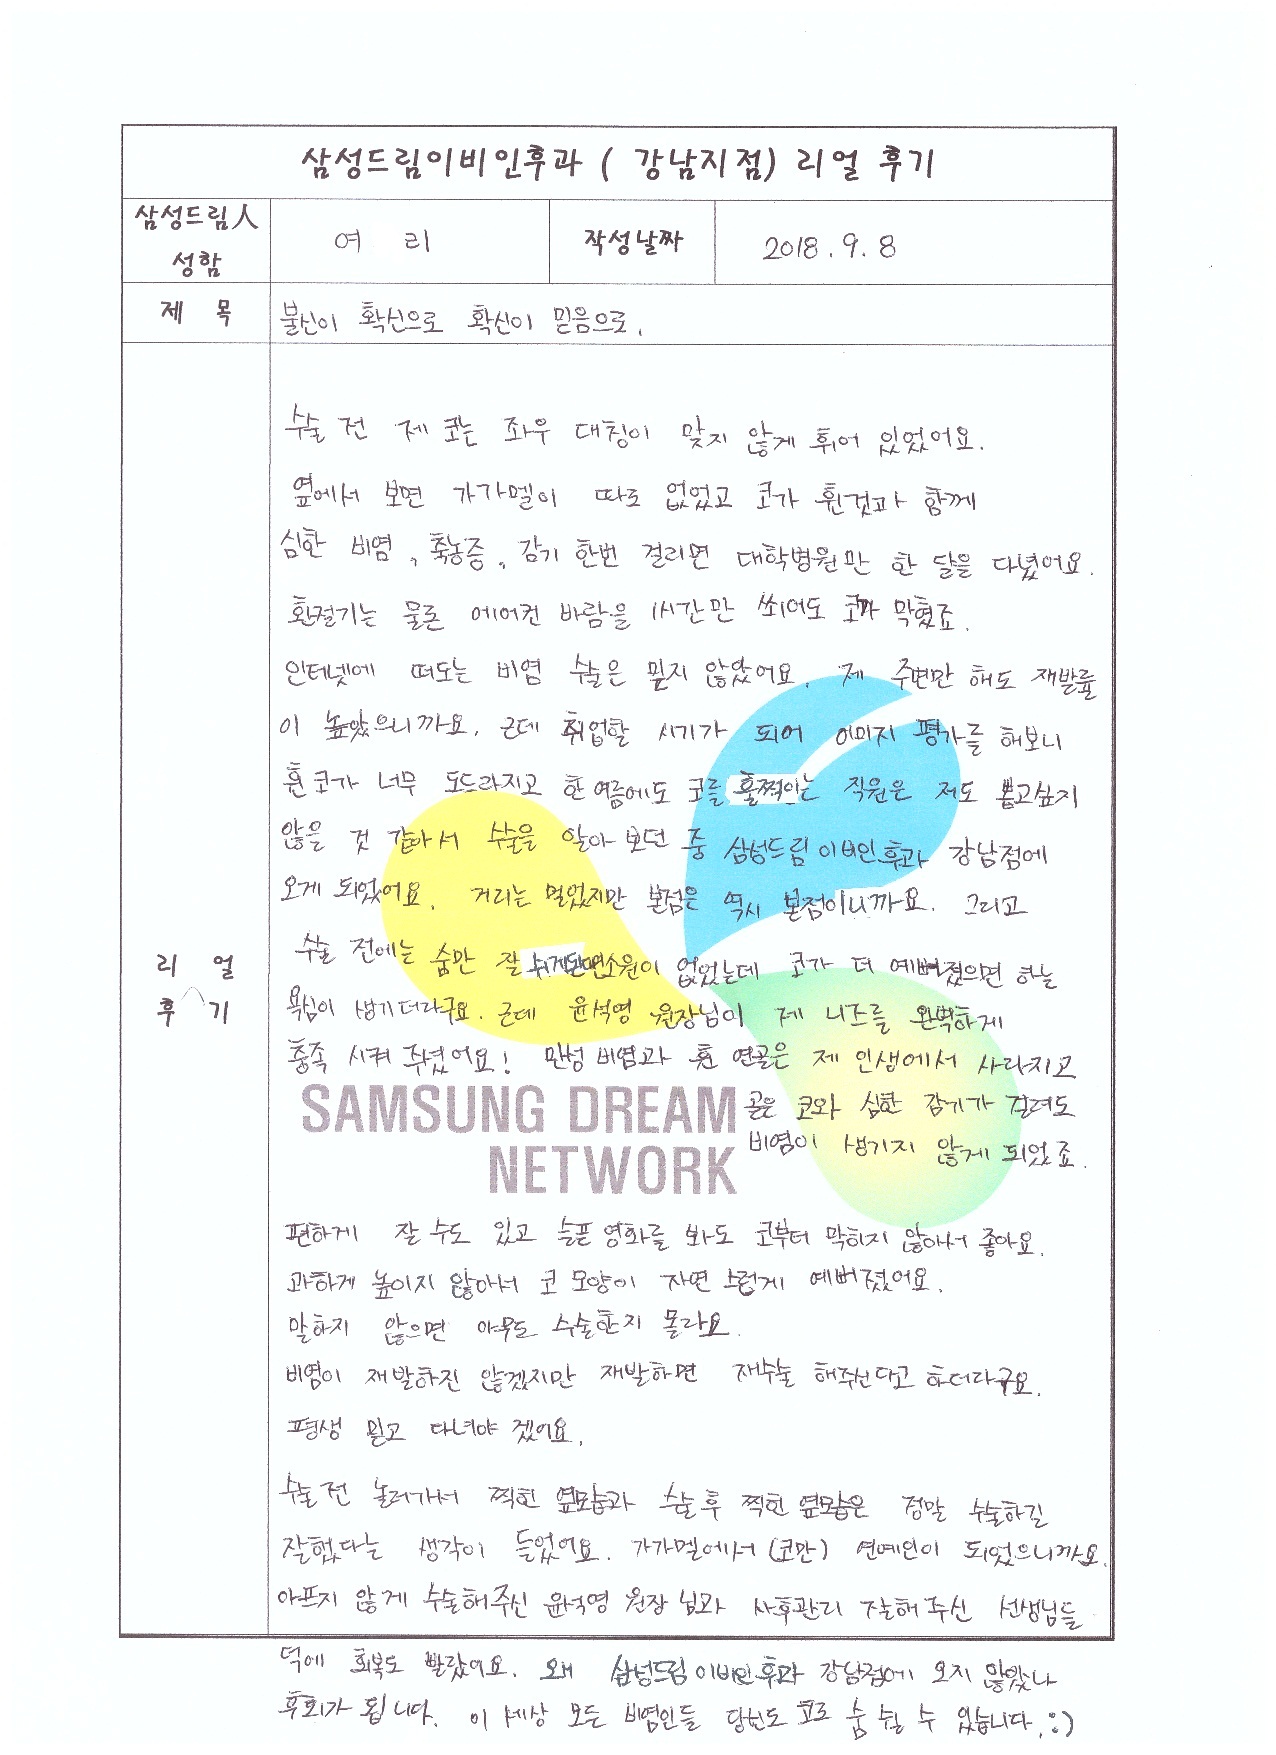 삼성드림이비인후과 ( 강남지점) 리얼 후기
삼성드림人 성함
여 리
작성날짜
2018. 9. 8
제 목
불신이 확신으로 확신이 믿음으로.
리 얼 후 기
수술 전 제 코는 좌우 대칭이 맞지 않게 휘어 있었어요.
옆에서 보면 가가멜이 따로 없었고 코가 휜것과 함께
심한 비염, 축농증, 감기 한번 걸리면 대학병원만 한 달을 다녔어요.
환절기는 물론 에어컨 바람을 1시간만 쐬어도 코가 막혔죠.
인터넷에 떠도는 비염 수술은 믿지 않았어요. 제 주변만 해도 재발률
이 높았으니까요. 근데 취업할 시기가 되어 이미지 평가를 해보니
휜 코가 너무 도드라지고 한 여름에도 코를 훌쩍이는 직원은 저도 뽑고싶지
않을 것 같아서 수술을 알아 보던 중 삼성드림이비인후과 강남점에
오게 되었어요. 거리는 멀었지만 본점은 역시 본점이니까요. 그리고
수술 전에는 숨만 잘 쉬게되면 소원이 없었는데 코가 더 예뻐졌으면 하는
욕심이 생기더라구요. 근데 윤석영 원장님이 제 니즈를 완벽하게
충족 시켜 주셨어요! 만성 비염과 휜 연골은 제 인생에서 사라지고
SAMSUNG DREAM
NETWORK
곧은 코와 심한 감기가 걸려도
비염이 생기지 않게 되었죠.
편하게 잘 수도 있고 슬픈 영화를 봐도 코부터 막히지 않아서 좋아요.
과하게 높이지 않아서 코 모양이 자연 스럽게 예뻐졌어요.
말하지 않으면 아무도 수술한지 몰라요.
비염이 재발하진 않겠지만 재발하면 재수술 해주신다고 하더라구요.
평생 믿고 다녀야 겠어요.
수술 전 놀러가서 찍힌 옆모습과 수술 후 찍힌 옆모습은 정말 수술하길
잘했다는 생각이 들었어요. 가가멜에서 (코만) 연예인이 되었으니까요.
아프지 않게 수술해주신 윤석영 원장 님과 사후관리 잘해주신 선생님들
덕에 회복도 빨랐어요. 왜 삼성드림이비인후과 강남점에 오지 않았나
후회가 됩니다. 이 세상 모든 비염인들 당신도 코로 숨 쉴 수 있습니다. :)